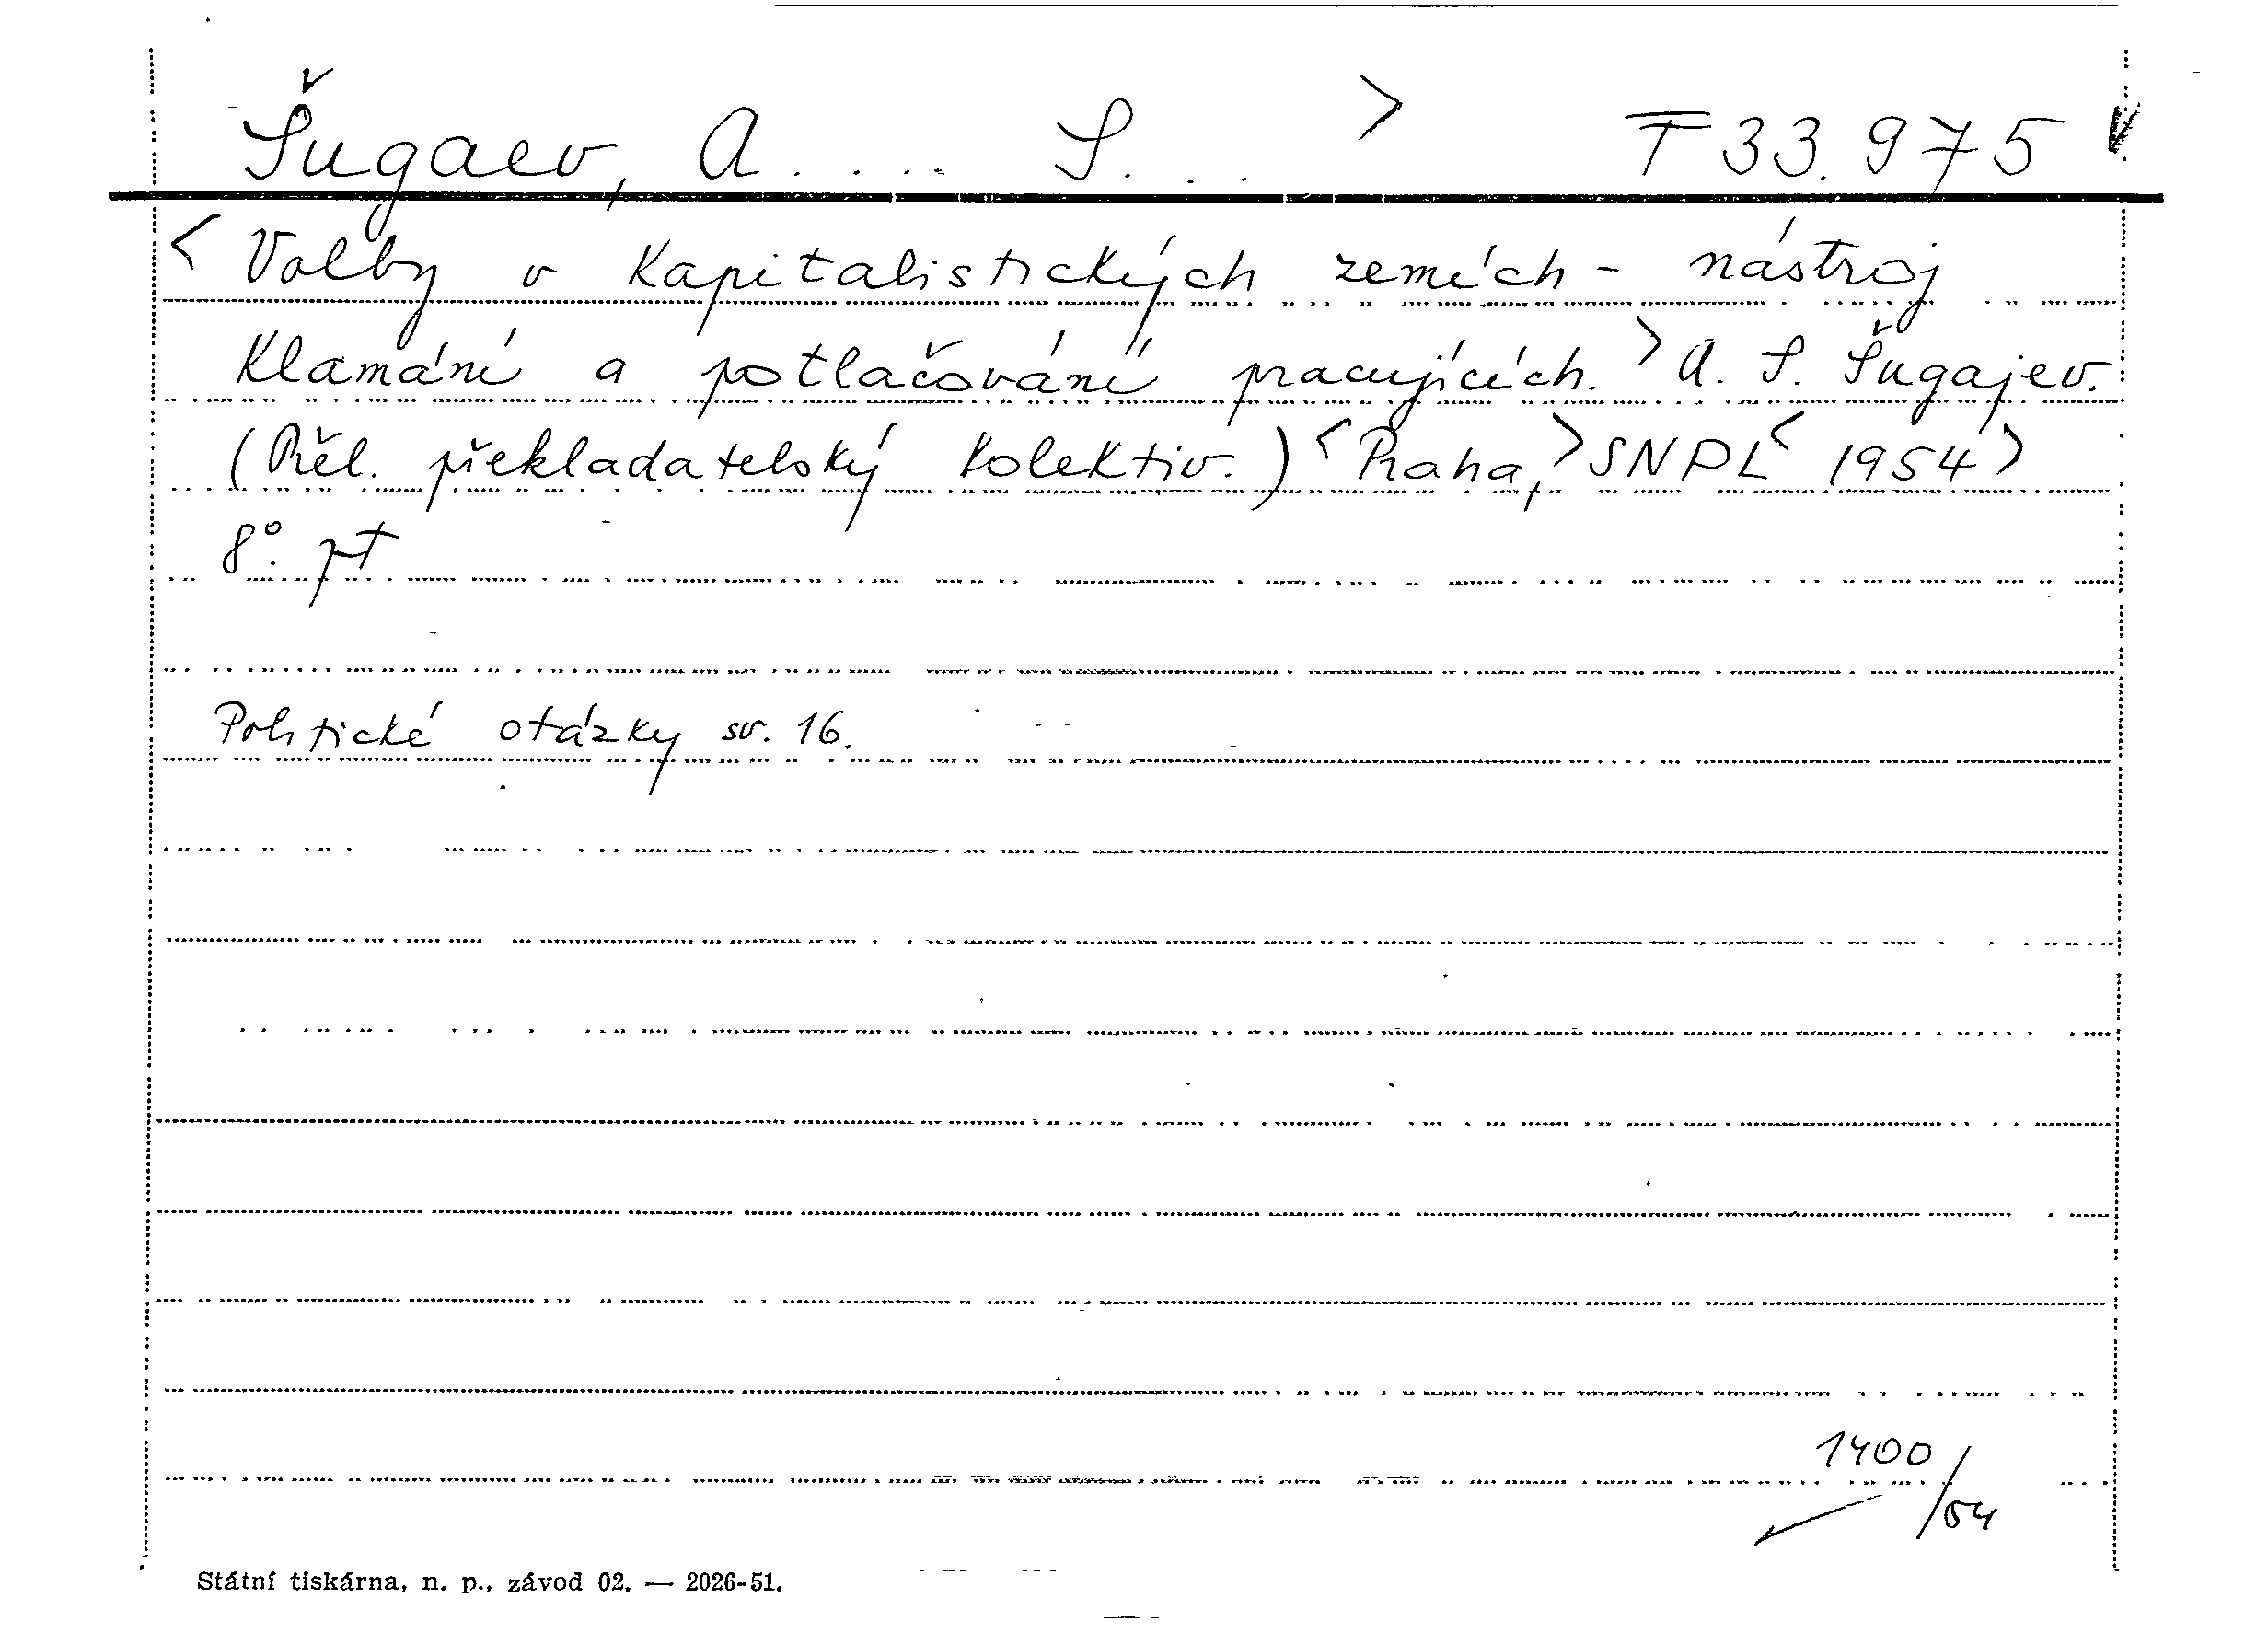 Šugaev, A.... S... > F 33.975
< Volby v kapitalistických zemích - nástroj
klamání a potlačování pracujících. > A. S. Šugajev.
(Přel. překladatelský kolektiv.) < Praha, > SNPL < 1954 >
8°. pt
Politické otázky sv. 16.
1400/54
Státní tiskárna, n. p., závod 02. — 2026-51.